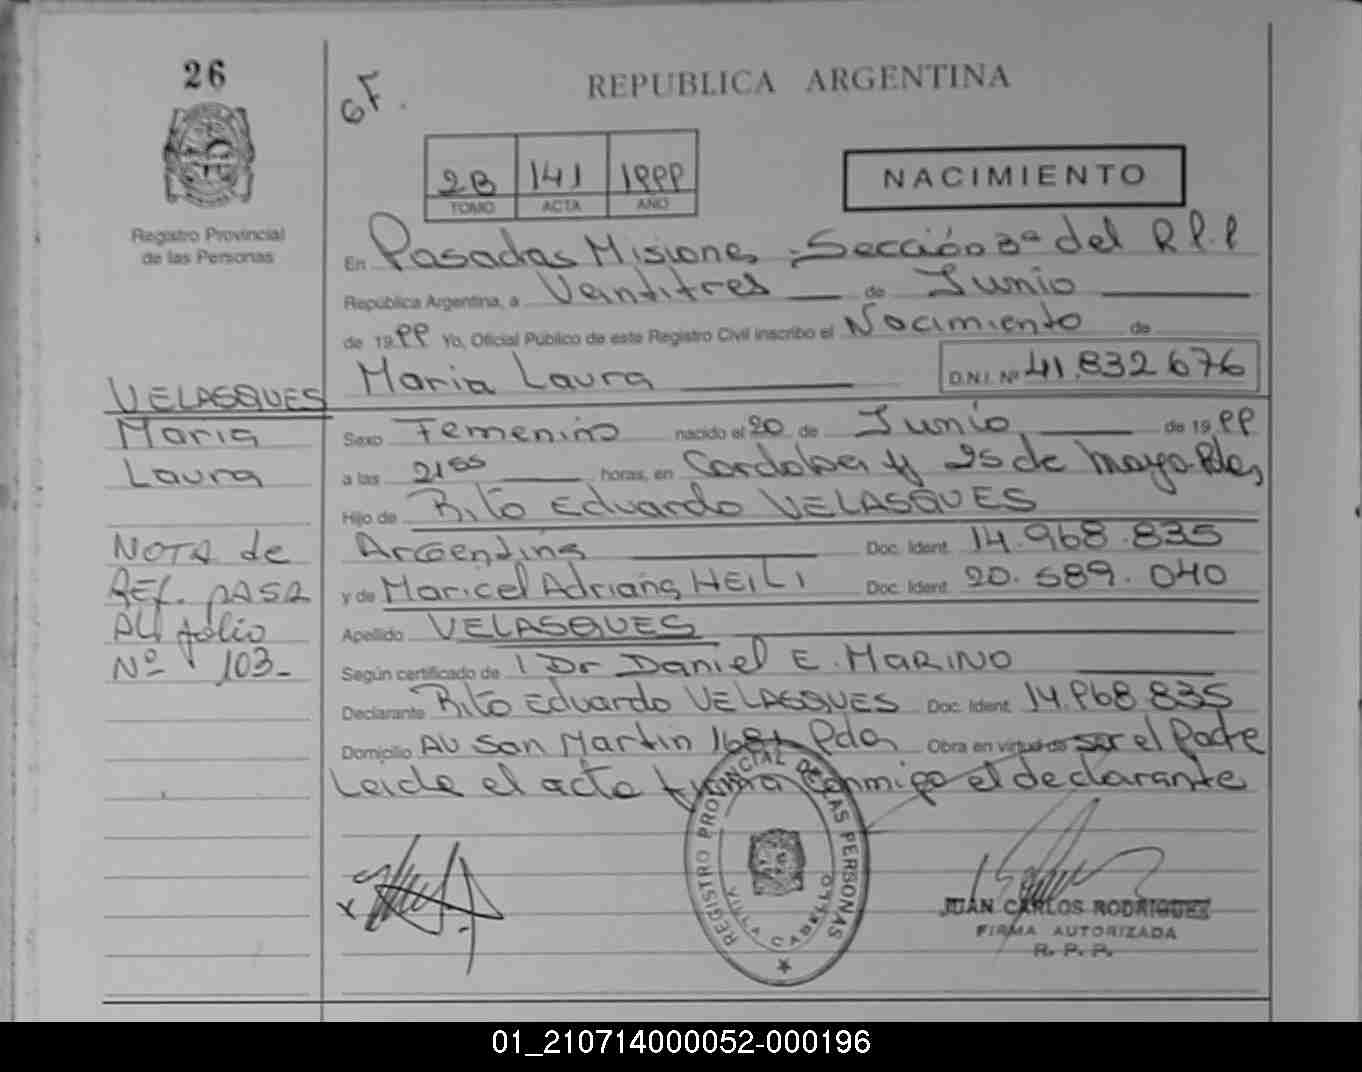 26
Registro Provincial
de las Personas
GF.
REPUBLICA ARGENTINA
2B 141 1999
TOMO ACTA AÑO
NACIMIENTO
En Posadas Misiones, Sección 3ª del R.P.P
República Argentina, a Veintitres de Junio
de 1999 Yo, Oficial Público de este Registro Civil inscribo el Nacimiento de
Maria Laura D.N.I. Nº 41.832.676
VELASQUES
Maria
Laura
Sexo Femenino nacido el 20 de Junio de 1999
a las 21⁵⁵ horas, en Cordoba y 25 de Mayo-Pdas,
Hijo de Rito Eduardo VELASQUES
Argentina Doc. Ident. 14.968.835
y de Maricel Adriana HEILI Doc. Ident. 20.589.040
Apellido VELASQUES
Según certificado de Dr Daniel E. MARINO
Declarante Rito Eduardo VELASQUES Doc. Ident. 14.968.835
Domicilio AV San Martin Pdas Obra en virtud de ser el Padre
Leida el acta firma conmigo el declarante
NOTA de
REF. pASA
AL folio
Nº 103-
REGISTRO PROVINCIAL DE LAS PERSONAS
VILLA CABELLO
JUAN CARLOS RODRIGUEZ
FIRMA AUTORIZADA
R. P. P.
01_210714000052-000196